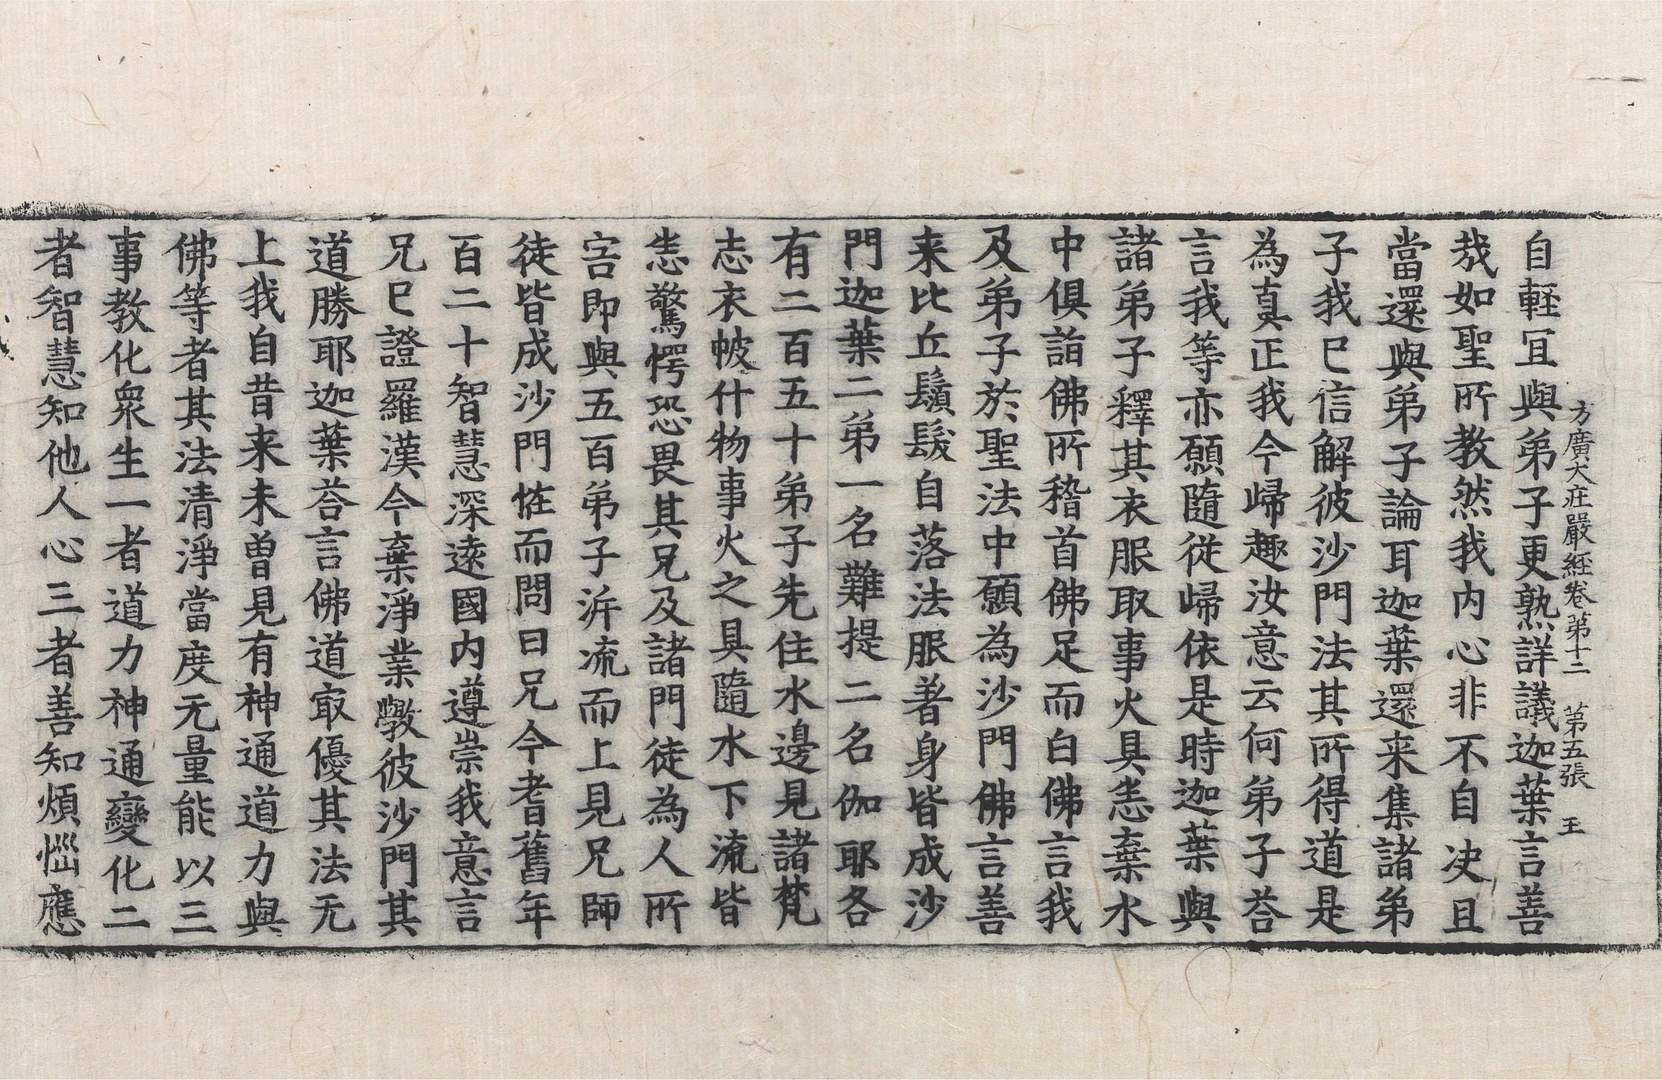 方廣大莊嚴經卷第十二 第五張 王
自輕冝與弟子更熟詳議迦葉言善
㢤如聖所教然我内心非不自决且
當還與弟子論耳迦葉還来集諸弟
子我已信解彼沙門法其所得道是
為真正我今歸趣汝意云何弟子荅
言我等亦願隨從歸依是時迦葉與
諸弟子釋其衣服取事火具恚棄水
中俱詣佛所稽首佛足而白佛言我
及弟子於聖法中願為沙門佛言善
来比丘鬚髮自落法服著身皆成沙
門迦葉二弟一名難提二名伽耶各
有二百五十弟子先住水邊見諸梵
志衣帔什物事火之具隨水下流皆
恚驚愕恐畏其兄及諸門徒為人所
害即與五百弟子泝流而上見兄師
徒皆成沙門恠而問曰兄今耆舊年
百二十智慧深遠國内遵崇我意言
兄已證羅漢今棄淨業斅彼沙門其
道勝耶迦葉荅言佛道㝡優其法无
上我自昔来未曾見有神通道力與
佛等者其法清淨當度无量能以三
事教化衆生一者道力神通變化二
者智慧知他人心三者善知煩惱應